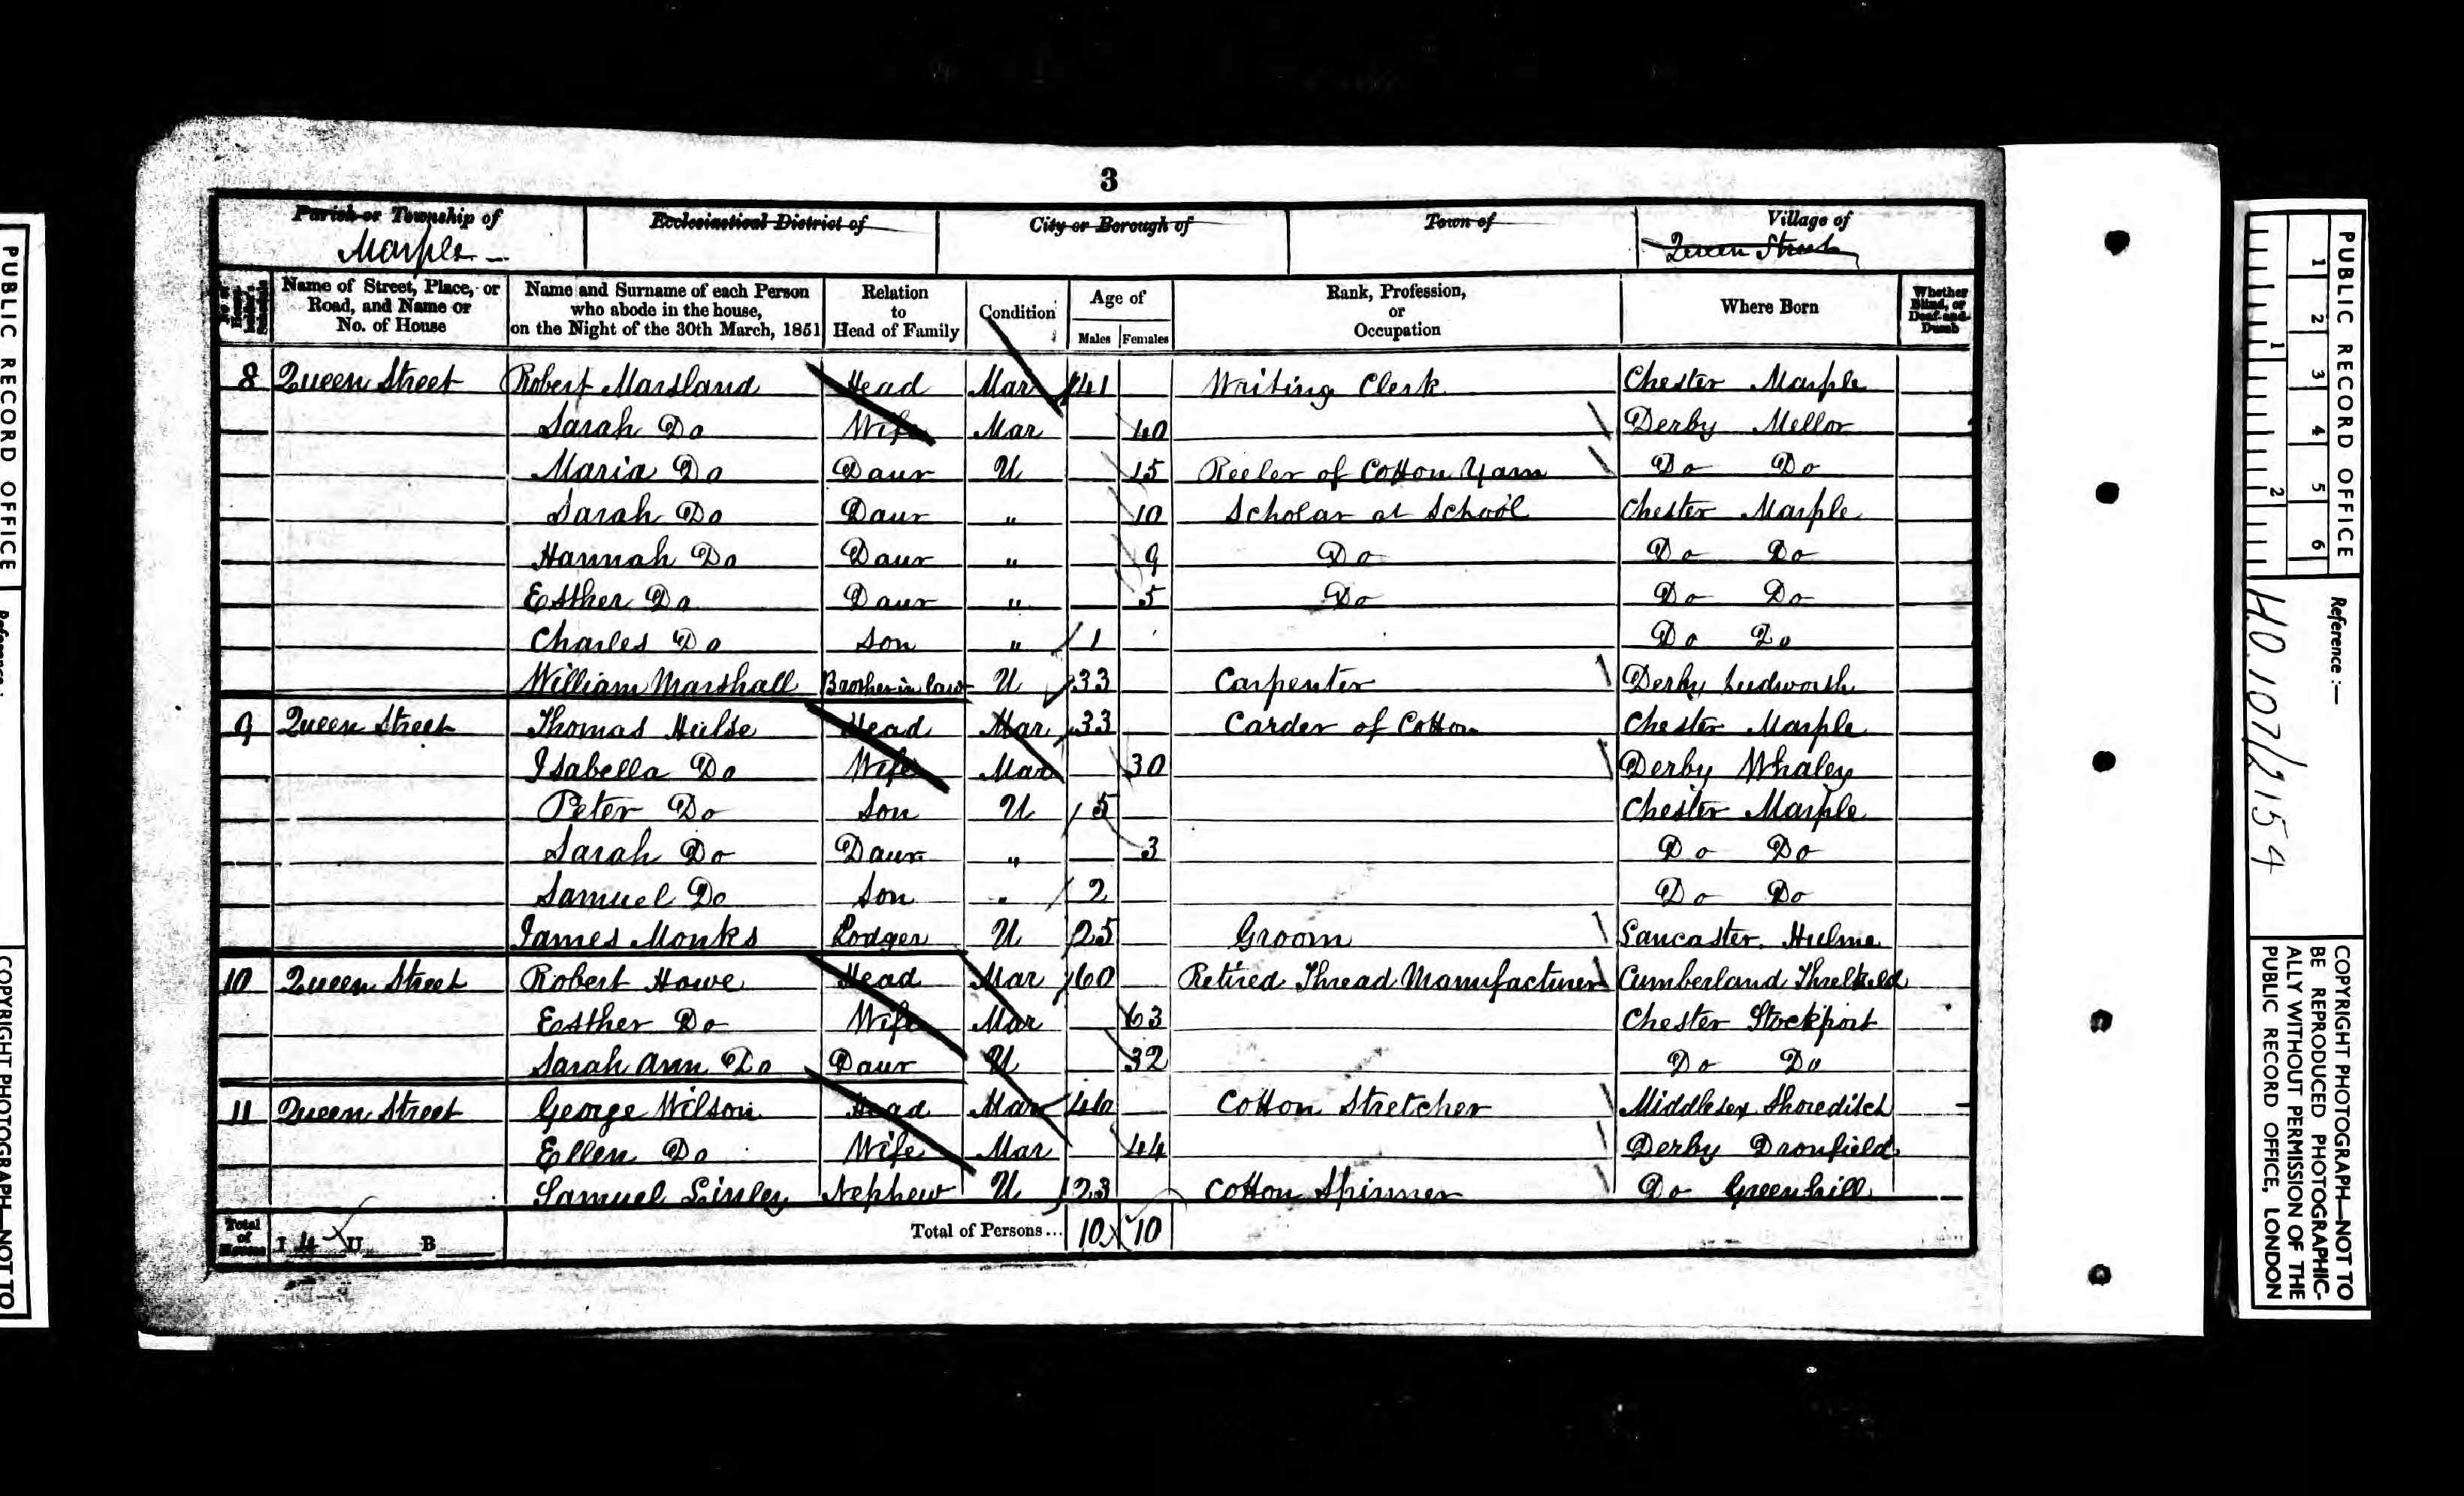 3
Parish or Township of Ecclesiastical District of City or Borough of Town of Village of
Marple Queen Street
No. of House-holder's Schedule Name of Street, Place, or Road, and Name or No. of House Name and Surname of each Person who abode in the house, on the Night of the 30th March, 1851 Relation to Head of Family Condition Age of Males Females Rank, Profession, or Occupation Where Born Whether Blind, or Deaf-and-Dumb
8 Queen Street Robert Marsland Head Mar 41 Writing Clerk Chester Marple
Sarah Do Wife Mar 40 Derby Mellor
Maria Do Daur U 15 Reeler of Cotton Yarn Do Do
Sarah Do Daur " 10 Scholar at School Chester Marple
Hannah Do Daur " 9 Do Do Do
Esther Do Daur " 5 Do Do Do
Charles Do Son " 1 Do Do
William Marshall Brother in law U 33 Carpenter Derby Ludworth
9 Queen Street Thomas Hulse Head Mar 33 Carder of Cotton Chester Marple
Isabella Do Wife Mar 30 Derby Whaley
Peter Do Son U 5 Chester Marple
Sarah Do Daur " 3 Do Do
Samuel Do Son " 2 Do Do
James Monks Lodger U 25 Groom Lancaster Hulme
10 Queen Street Robert Howe Head Mar 60 Retired Thread Manufacturer Cumberland Threlkeld
Esther Do Wife Mar 63 Chester Stockport
Sarah Ann Do Daur U 32 Do Do
11 Queen Street George Wilson Head Mar Cotton Stretcher Middlesex Shoreditch
Ellen Do Wife Mar 44 Derby Dronfield
Samuel Linley Nephew U 23 Cotton Spinner Do Greenhill
Total of Houses I 4 U B Total of Persons... 10 10
PUBLIC RECORD OFFICE
Reference :-
COPYRIGHT PHOTOGRAPH—NOT TO
1 2 3 4 5 6
1 2
PUBLIC RECORD OFFICE
Reference :—
H.O. 107/2154
COPYRIGHT PHOTOGRAPH—NOT TO
BE REPRODUCED PHOTOGRAPHIC-
ALLY WITHOUT PERMISSION OF THE
PUBLIC RECORD OFFICE, LONDON